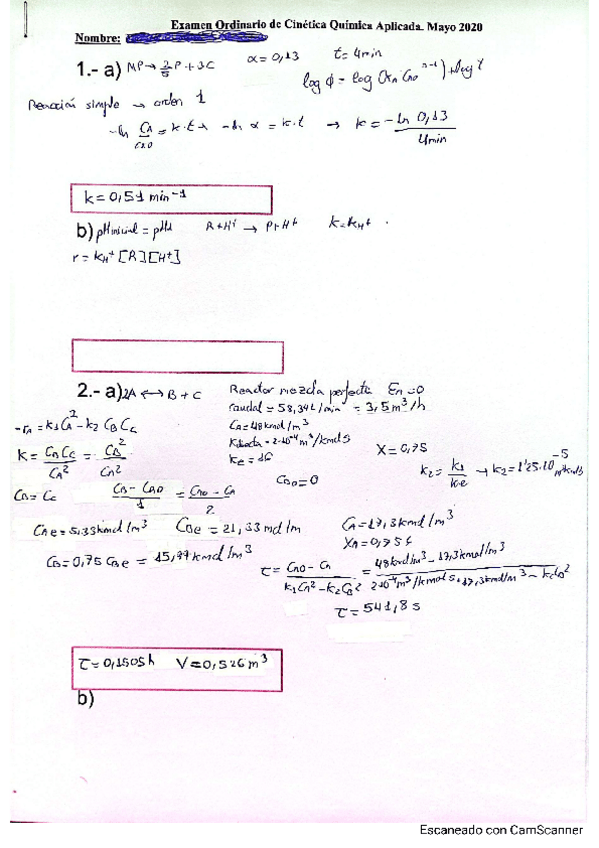 Examen Ordinario de Cinética Química Aplicada. Mayo 2020
Nombre:
1.- a) MP → 2/5 P + 3C   α = 0,13   t = 4 min
log ϕ = log (K_A C_A0^(n-1)) + log t
Reacción simple → orden 1
-ln C_A/C_A0 = k·t → -ln α = k·t → k = -ln 0,13 / 4 min
k = 0,51 min⁻¹
b) pH inicial = pH   R + H⁺ → P + H⁺   k = k_H⁺
r = k_H⁺ [R][H⁺]
2.- a) 2A ⟷ B + C   Reactor mezcla perfecta   E_A = 0
caudal = 58,34 L/min = 3,5 m³/h
-r_A = k₁C_A² - k₂ C_B C_C   C_A = 48 kmol/m³
K directa = 2·10⁻⁴ m³/kmol s   X = 0,75
K = C_B C_C / C_A² = C_B² / C_A²   k_e = 16   k₂ = k₁/k_e → k₂ = 1'25·10⁻⁵ m³/kmol s
C_B0 = 0
C_B = C_C   (C_B - C_B0)/1 = (C_A0 - C_A)/2
C_Ae = 5,33 kmol/m³   C_Be = 21,33 mol/m   C_A = 17,3 kmol/m³
X_A = 0,75
C_B = 0,75 C_Be = 15,99 kmol/m³
τ = (C_A0 - C_A) / (k₁C_A² - k₂C_B²) = (48 kmol/m³ - 17,3 kmol/m³) / (2·10⁻⁴ m³/kmol s · 17,3 kmol/m³ - k₂C_B²)
τ = 541,8 s
τ = 0,1505 h   V = 0,526 m³
b)
Escaneado con CamScanner